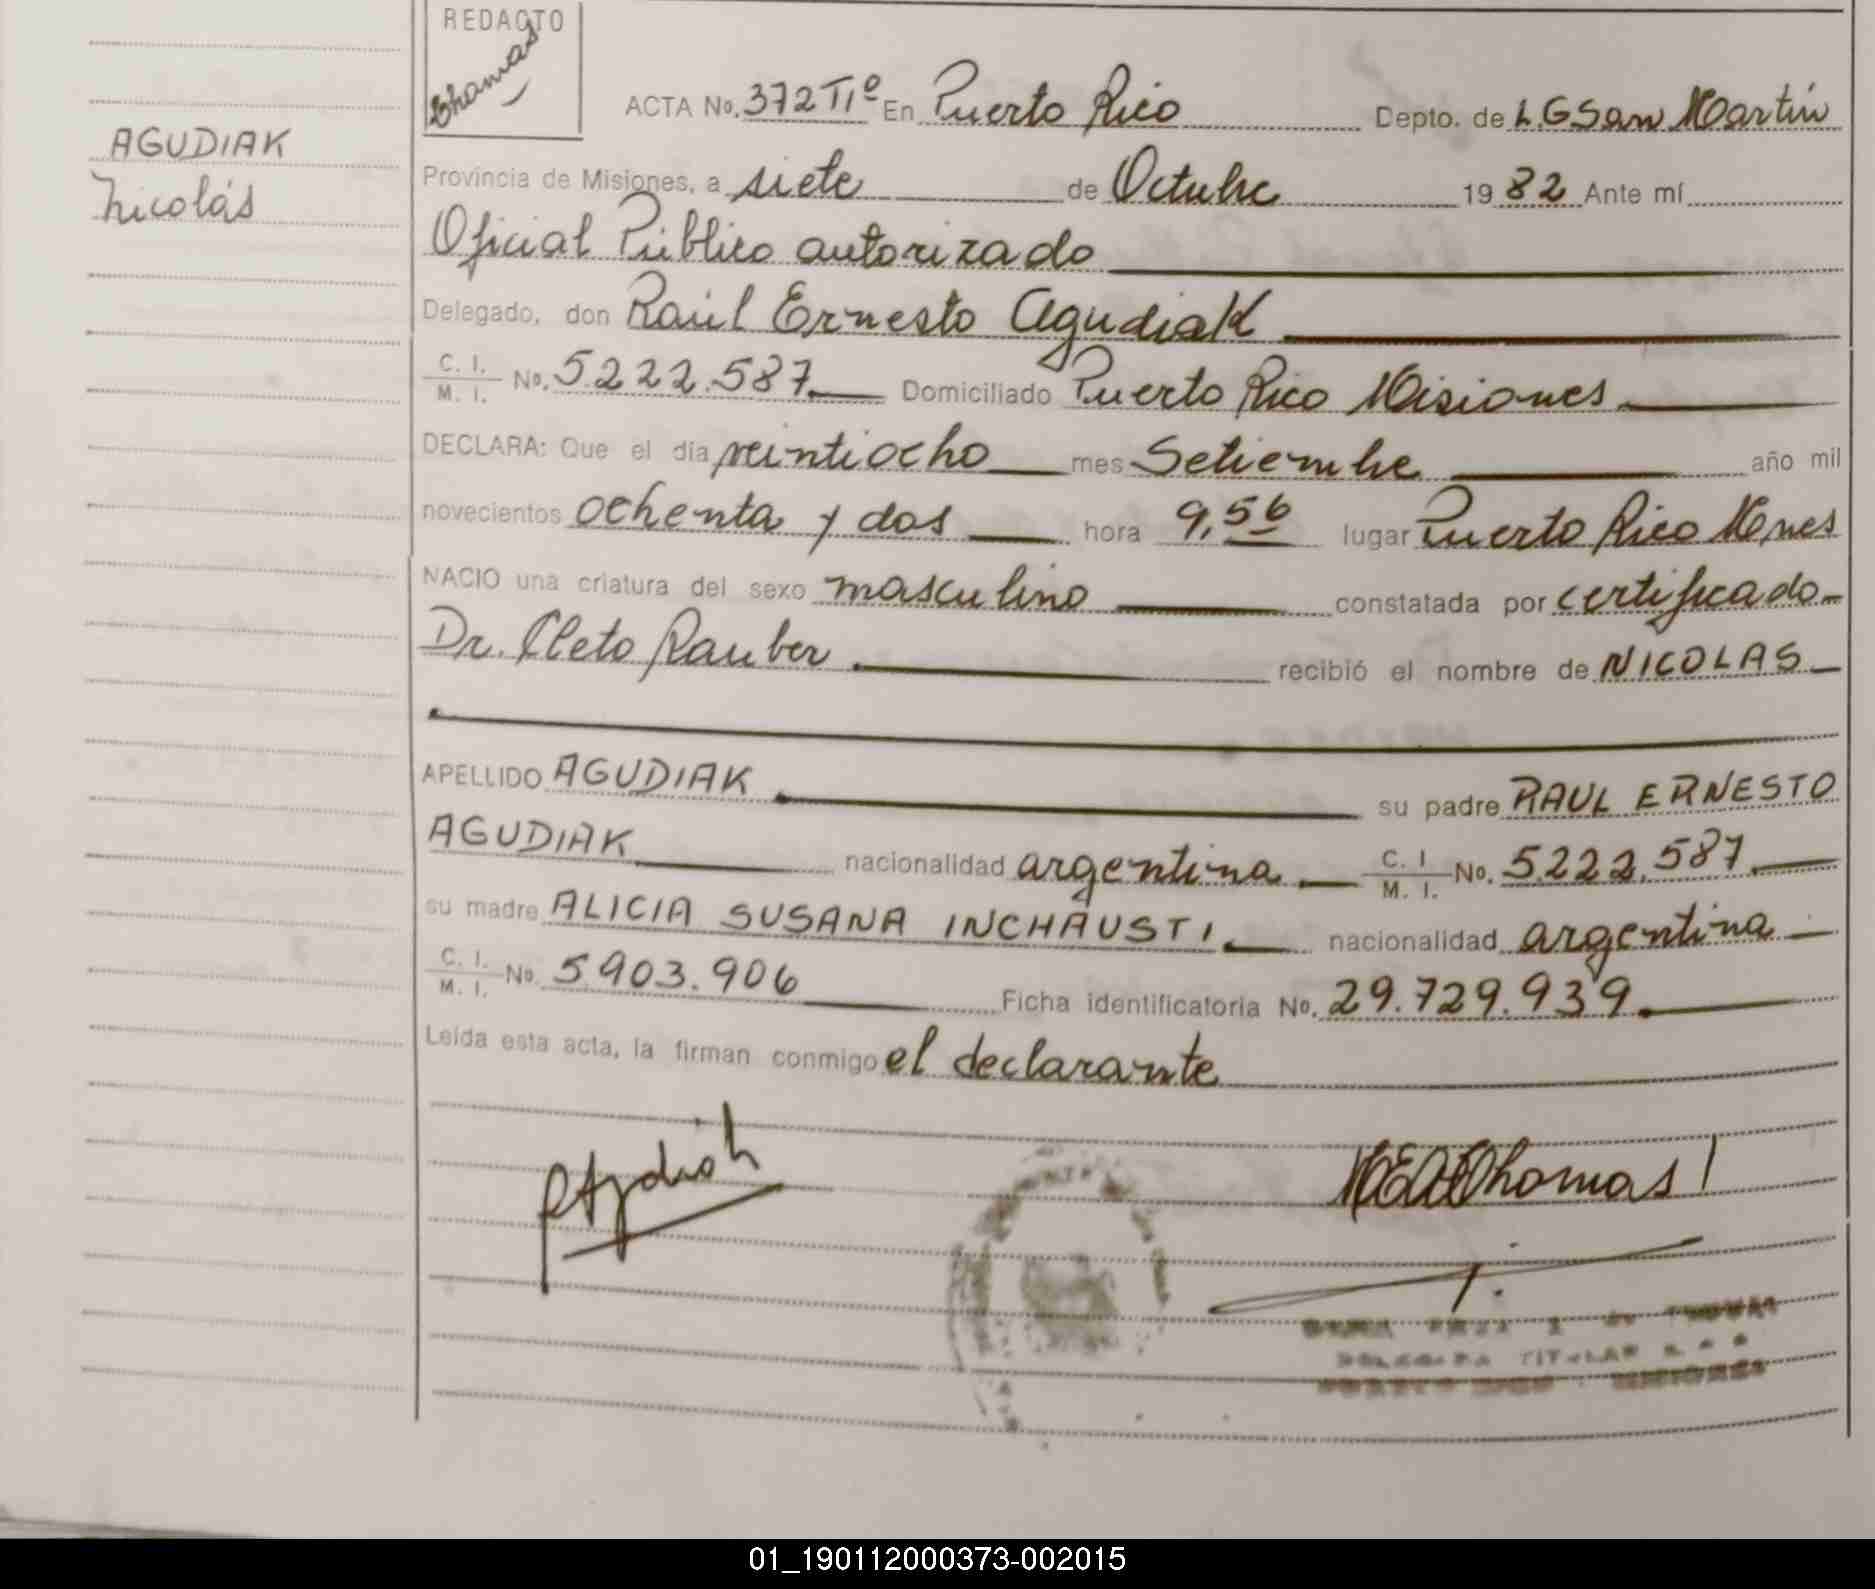 REDACTO
Thomas
AGUDIAK
Nicolás
ACTA No. 372 TIº En Puerto Rico Depto. de L.G San Martín
Provincia de Misiones, a siete de Octubre 1982 Ante mí
Oficial Público autorizado
Delegado, don Raúl Ernesto Agudiak
C. I. / M. I. No. 5.222.587 Domiciliado Puerto Rico Misiones
DECLARA: Que el día veintiocho mes Setiembre año mil
novecientos ochenta y dos hora 9,56 lugar Puerto Rico Mnes
NACIO una criatura del sexo masculino constatada por certificado
Dr. Cleto Rauber recibió el nombre de NICOLAS
APELLIDO AGUDIAK su padre RAUL ERNESTO
AGUDIAK nacionalidad argentina C. I / M. I. No. 5.222.587
su madre ALICIA SUSANA INCHAUSTI nacionalidad argentina
C. I. / M. I. No. 5.903.906 Ficha identificatoria No. 29.729.939
Leída esta acta, la firman conmigo el declarante
Thomas
TITULAR
01_190112000373-002015